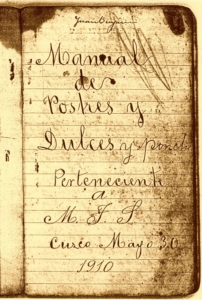 Manual
de
Postres y
Dulces y ponch
Perteneciente
a
M. J. S.
Cusco Mayo 30
1910